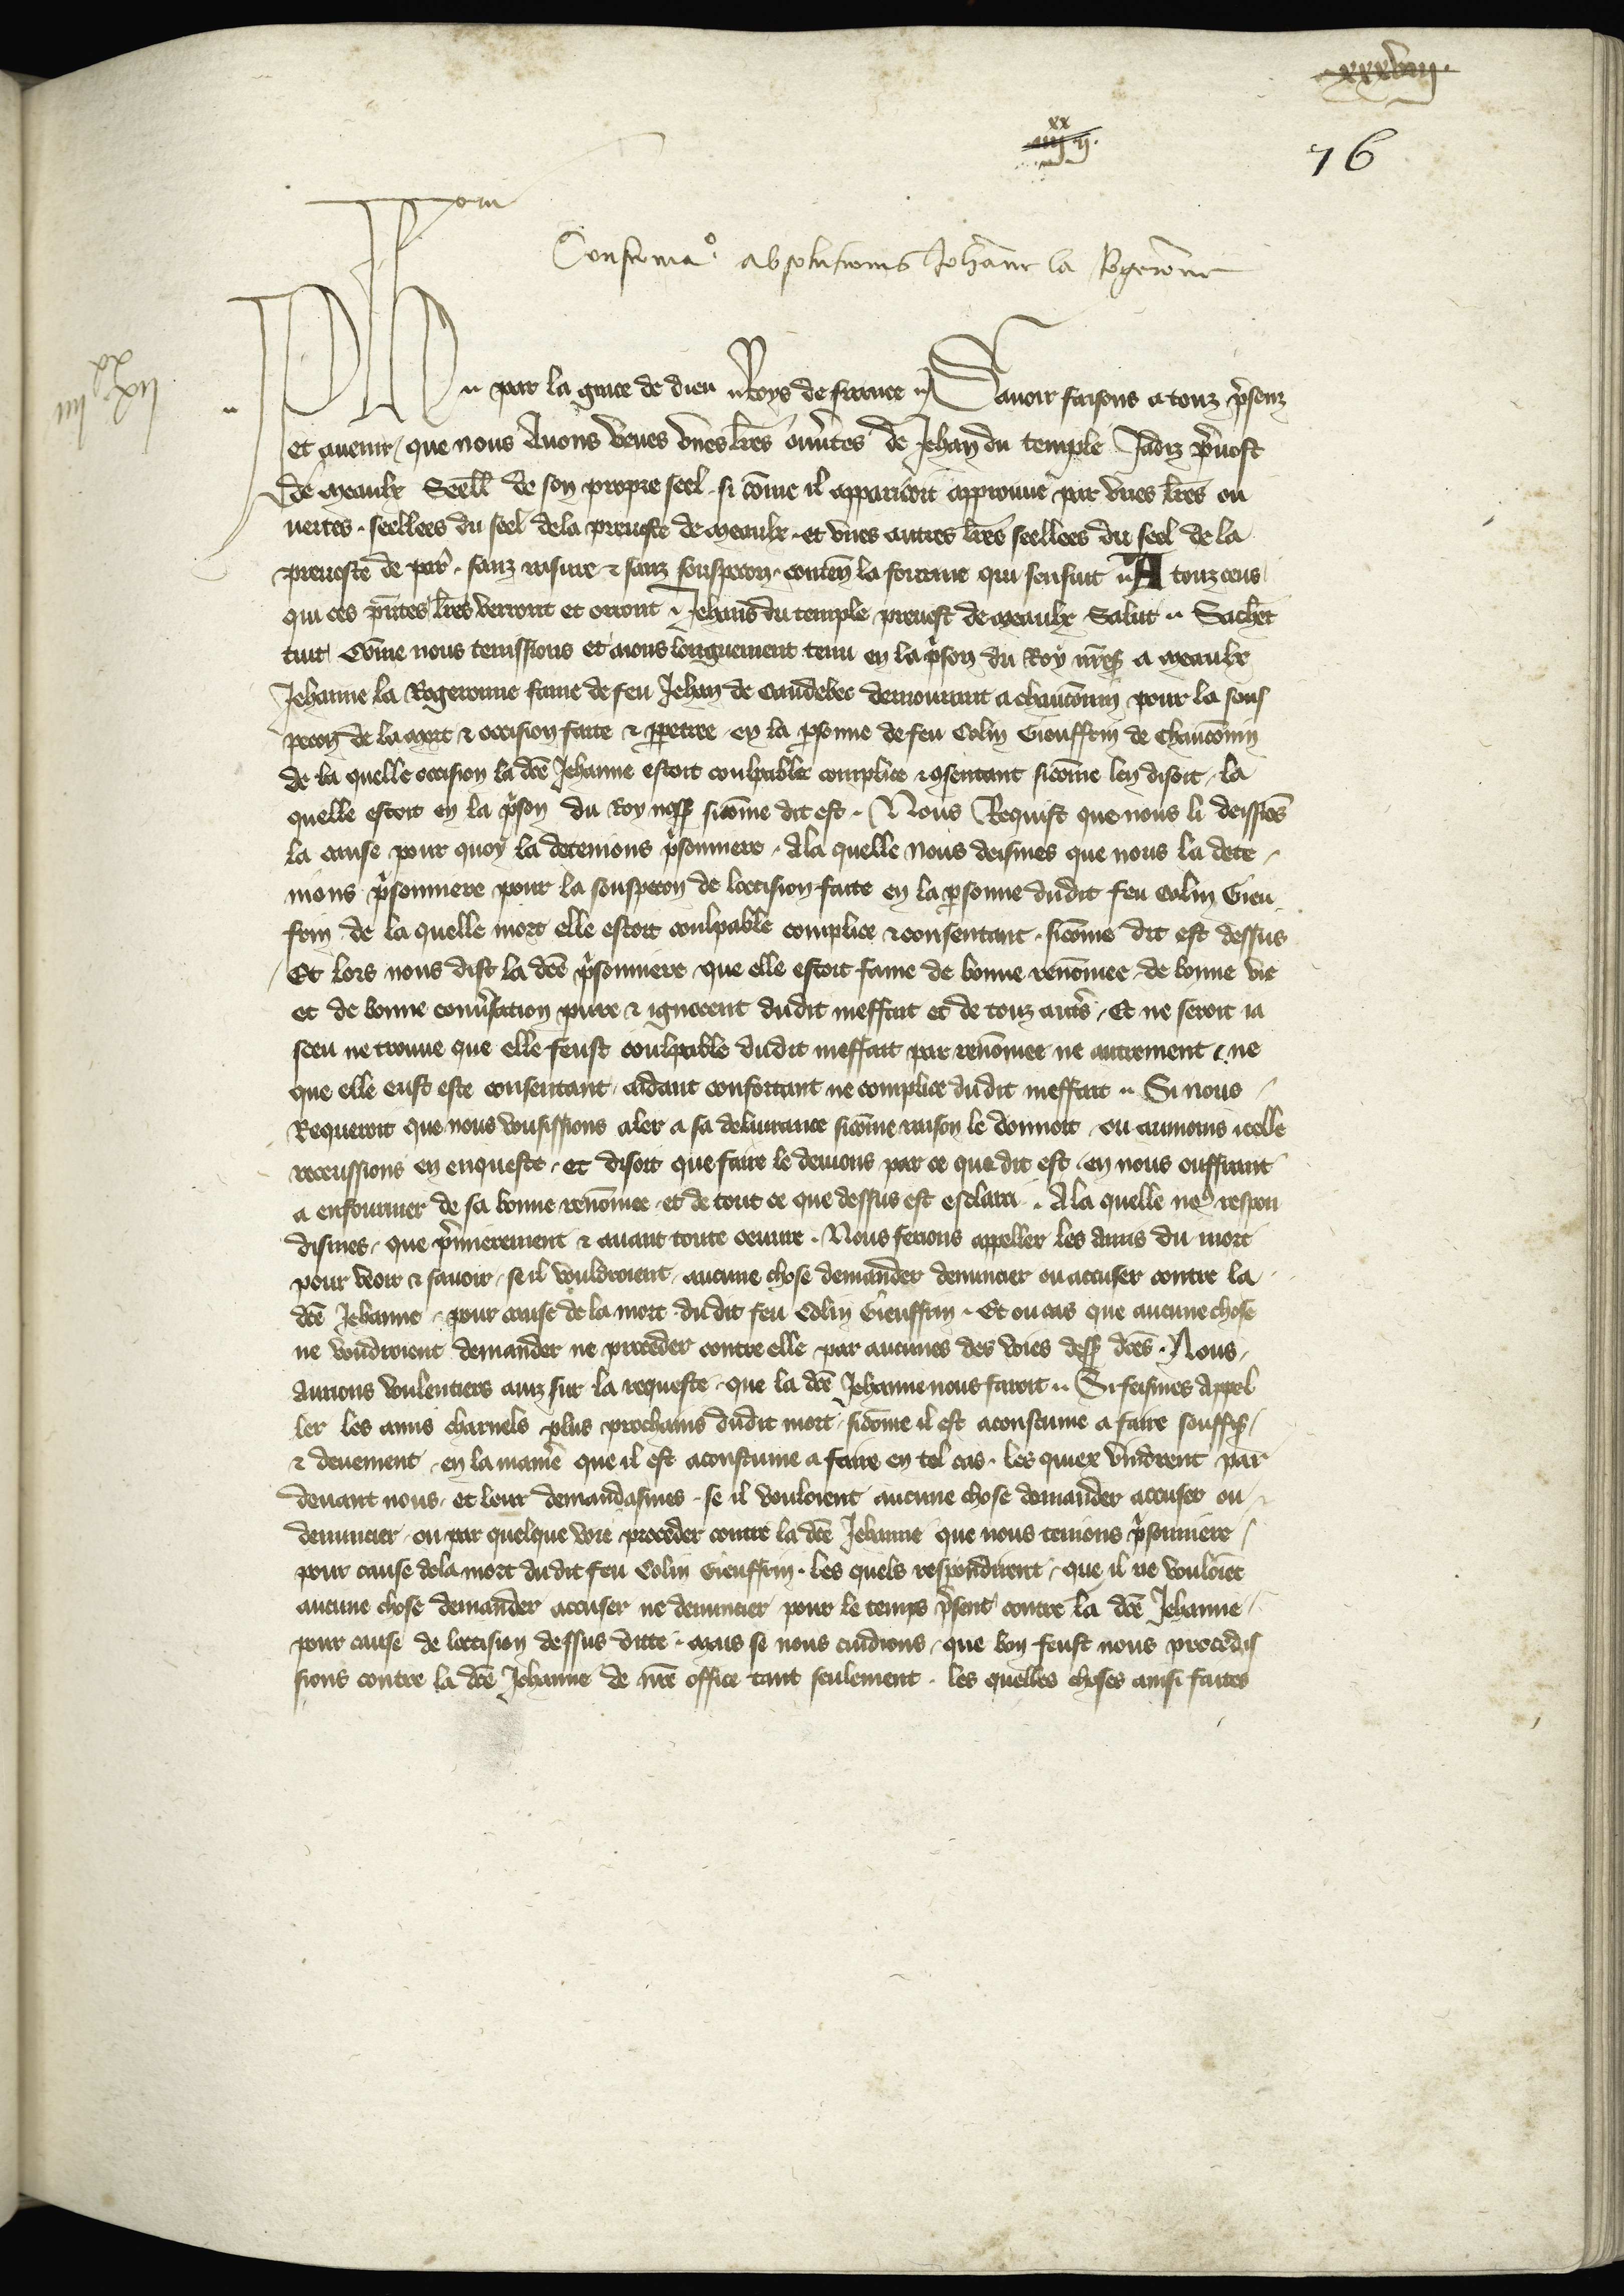 xxxviii.
xx
iiii ii.
76
Confirmaº absolucionis Johanne la Rogeronne
Ph par la grace de dieu Roys de france Sauoir faisons a touz pñsenz
et auenir / que nous Auons veues vnes lr̃es ouu̾tes de Jehan du temple Jadiz p̾uost
de meaulx Seell̃ de son propre seel . si cõme il apparoit approuue par vnes lr̃es ou
uertes . seellees du seel dela preuoste de meaulx . et vnes autres lr̃es seellees du seel de la
preuoste de par̾ . sanz rasure & sanz souspecon . conteñ la fourme qui sensuit A touz ceus
qui ces pñtes lr̃es verront et orront Jehans du temple preuost de meaulx Salut Sachẽt
tuit Cõme nous tenissions et aions longuement tenu en la p̾son du Roy nr̃es̾ a meaulx
Jehanne la Rogeronne fame de feu Jehan de Caudebec demourant a chauconin pour la sous
pecon de la mort & occision faite & ꝑpetree en la ꝑsonne de feu Colin Gieuffrin de Chauconin
de la quelle occision la dc̃e Jehanne estoit coulpable complice & ꝯsentant sicõme len disoit . la
quelle estoit en la p̾son du Roy nos̾ sicõme dit est . Nous Requist que nous li deissiõs
la cause pour quoy la detenions p̾sonniere . Ala quelle nous deismes que nous la dete
nions p̾sonniere pour la souspecon de loccision faite en la ꝑsonne dudit feu Colin Gieu
frin de la quelle mort elle estoit coulpable complice & consentant . sicõme dit est dessus
Et lors nous dist la dc̃e p̾sonniere que elle estoit fame de bonne renõmee de bonne vie
et de bonne conu̾sation pure & ignocent dudit meffait et de touz autr̾es . Et ne seroit ia
sceu ne trouue que elle feust coulpable dudit meffait par renõmee ne autrement / ne
que elle eust este consentant aidant confortant ne complice dudit meffait Si nous
Requeroit que nous vousissions aler a sa deliurance sicõme raison le donnoit . ou aumoins icelle
receussions en enqueste . et disoit que faire le deuions par ce que dit est . en nous ouffrant
a enfourmer de sa bonne renõmee . et de tout ce que dessus est esclarci . Ala quelle no9 respon
dismes . que p̾mierement & auant toute oeuure . Nous ferions appeller les Amis du mort
pour veoir & sauoir . se il vouldroient aucune chose demander denuncier ou accuser contre la
dc̃e Jehanne . pour cause de la mort . dudit feu Colin Gieuffrin . Et ou cas que aucune chose
ne voudroient demander ne proceder contre elle par aucunes des voies dess̾ dc̃es . Nous
Aurions voulentiers auiz sur la requeste . que la dc̃e Jehanne nous faroit Si feismes Appel
ler les amis charnels plus prochains dudit mort . sicõme il est acoustume a faire souffis̾
& deuement . en la manie̾ que il est acoustume a faire en tel cas . les quiex vindrent par
deuant nous . et leur demandasmes . se il vouloient aucune chose demander accuser ou
denuncier . ou par quelque voie proceder contre la dc̃e Jehanne que nous tenions p̾sonniere
pour cause dela mort dudit feu Colin Gieuffrin . les quels respondirent . que il ne vouloiẽt
aucune chose demander accuser ne denuncier pour le temps p̾sent contre la dc̃e Jehanne
pour cause de loccision dessus ditte . mais se nous cuidions . que bon feust nous procedis
sions contre la dc̃e Jehanne de nr̃e office tant seulement . les quelles choses ainsi faites